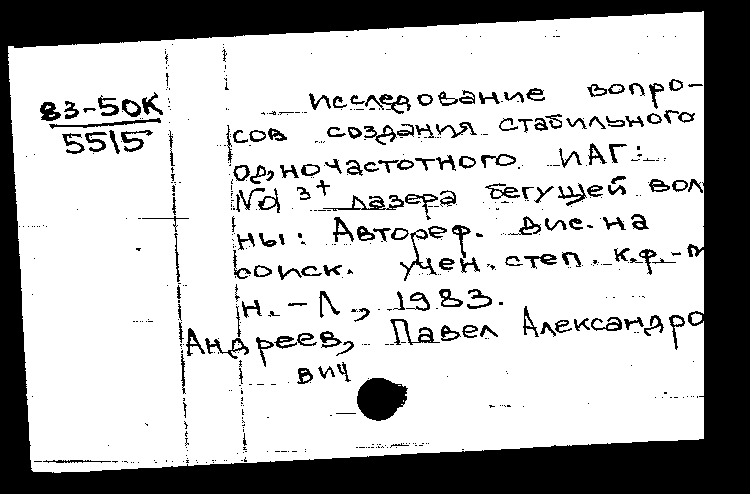 83-50К
5515
Исследование вопро-
сов создания стабильного
одночастотного ИАГ:
Nd 3+ лазера бегущей вол
ны: Автореф. дис. на
соиск. учен. степ. к.ф.-м
н. - Л., 1983.
Андреев, Павел Александро
вич